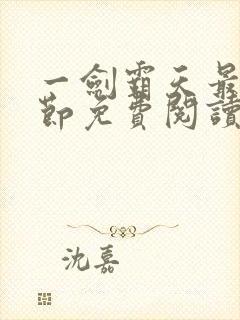 一劍霸天最
節免費閱讀
沈嘉